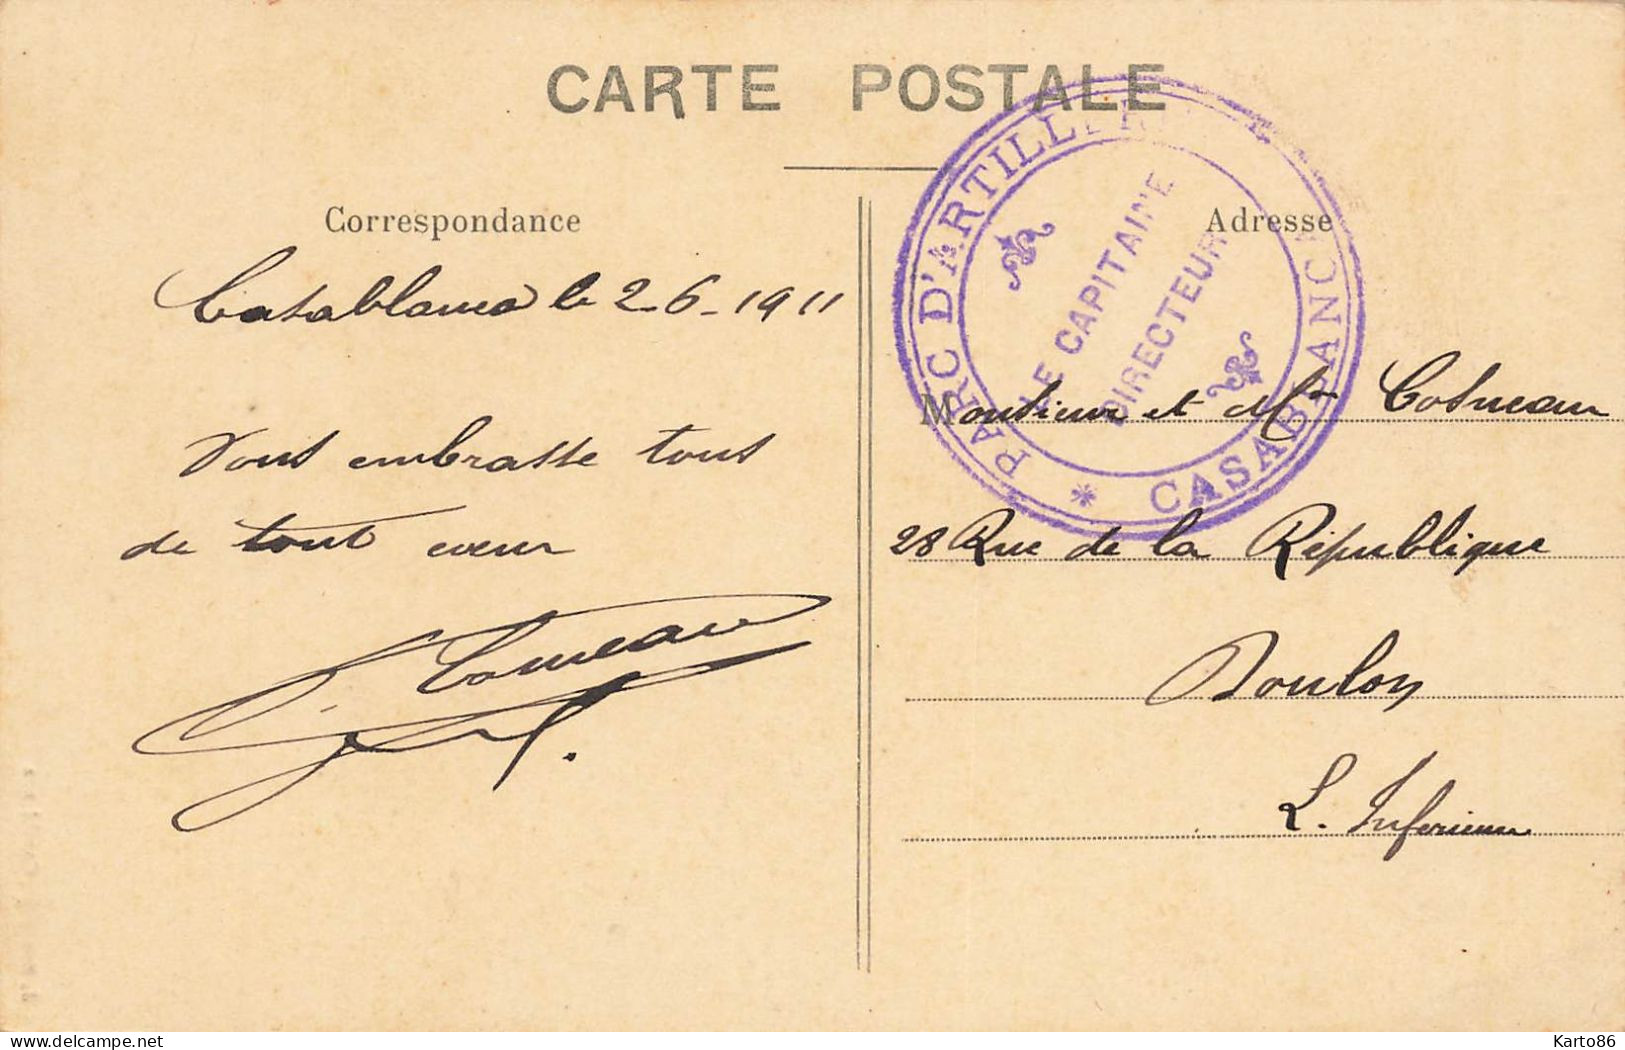 CARTE POSTALE
Correspondance
Adresse
PARC D'ARTILLERIE CASABLANCA
LE CAPITAINE
DIRECTEUR
Casablanca le 2-6-1911
Vous embrasse tous
de tout cœur
Cosneau
Monsieur et Mme Cosneau
28 Rue de la République
Doulon
L. Inferieure
delcampe.net
Karto86